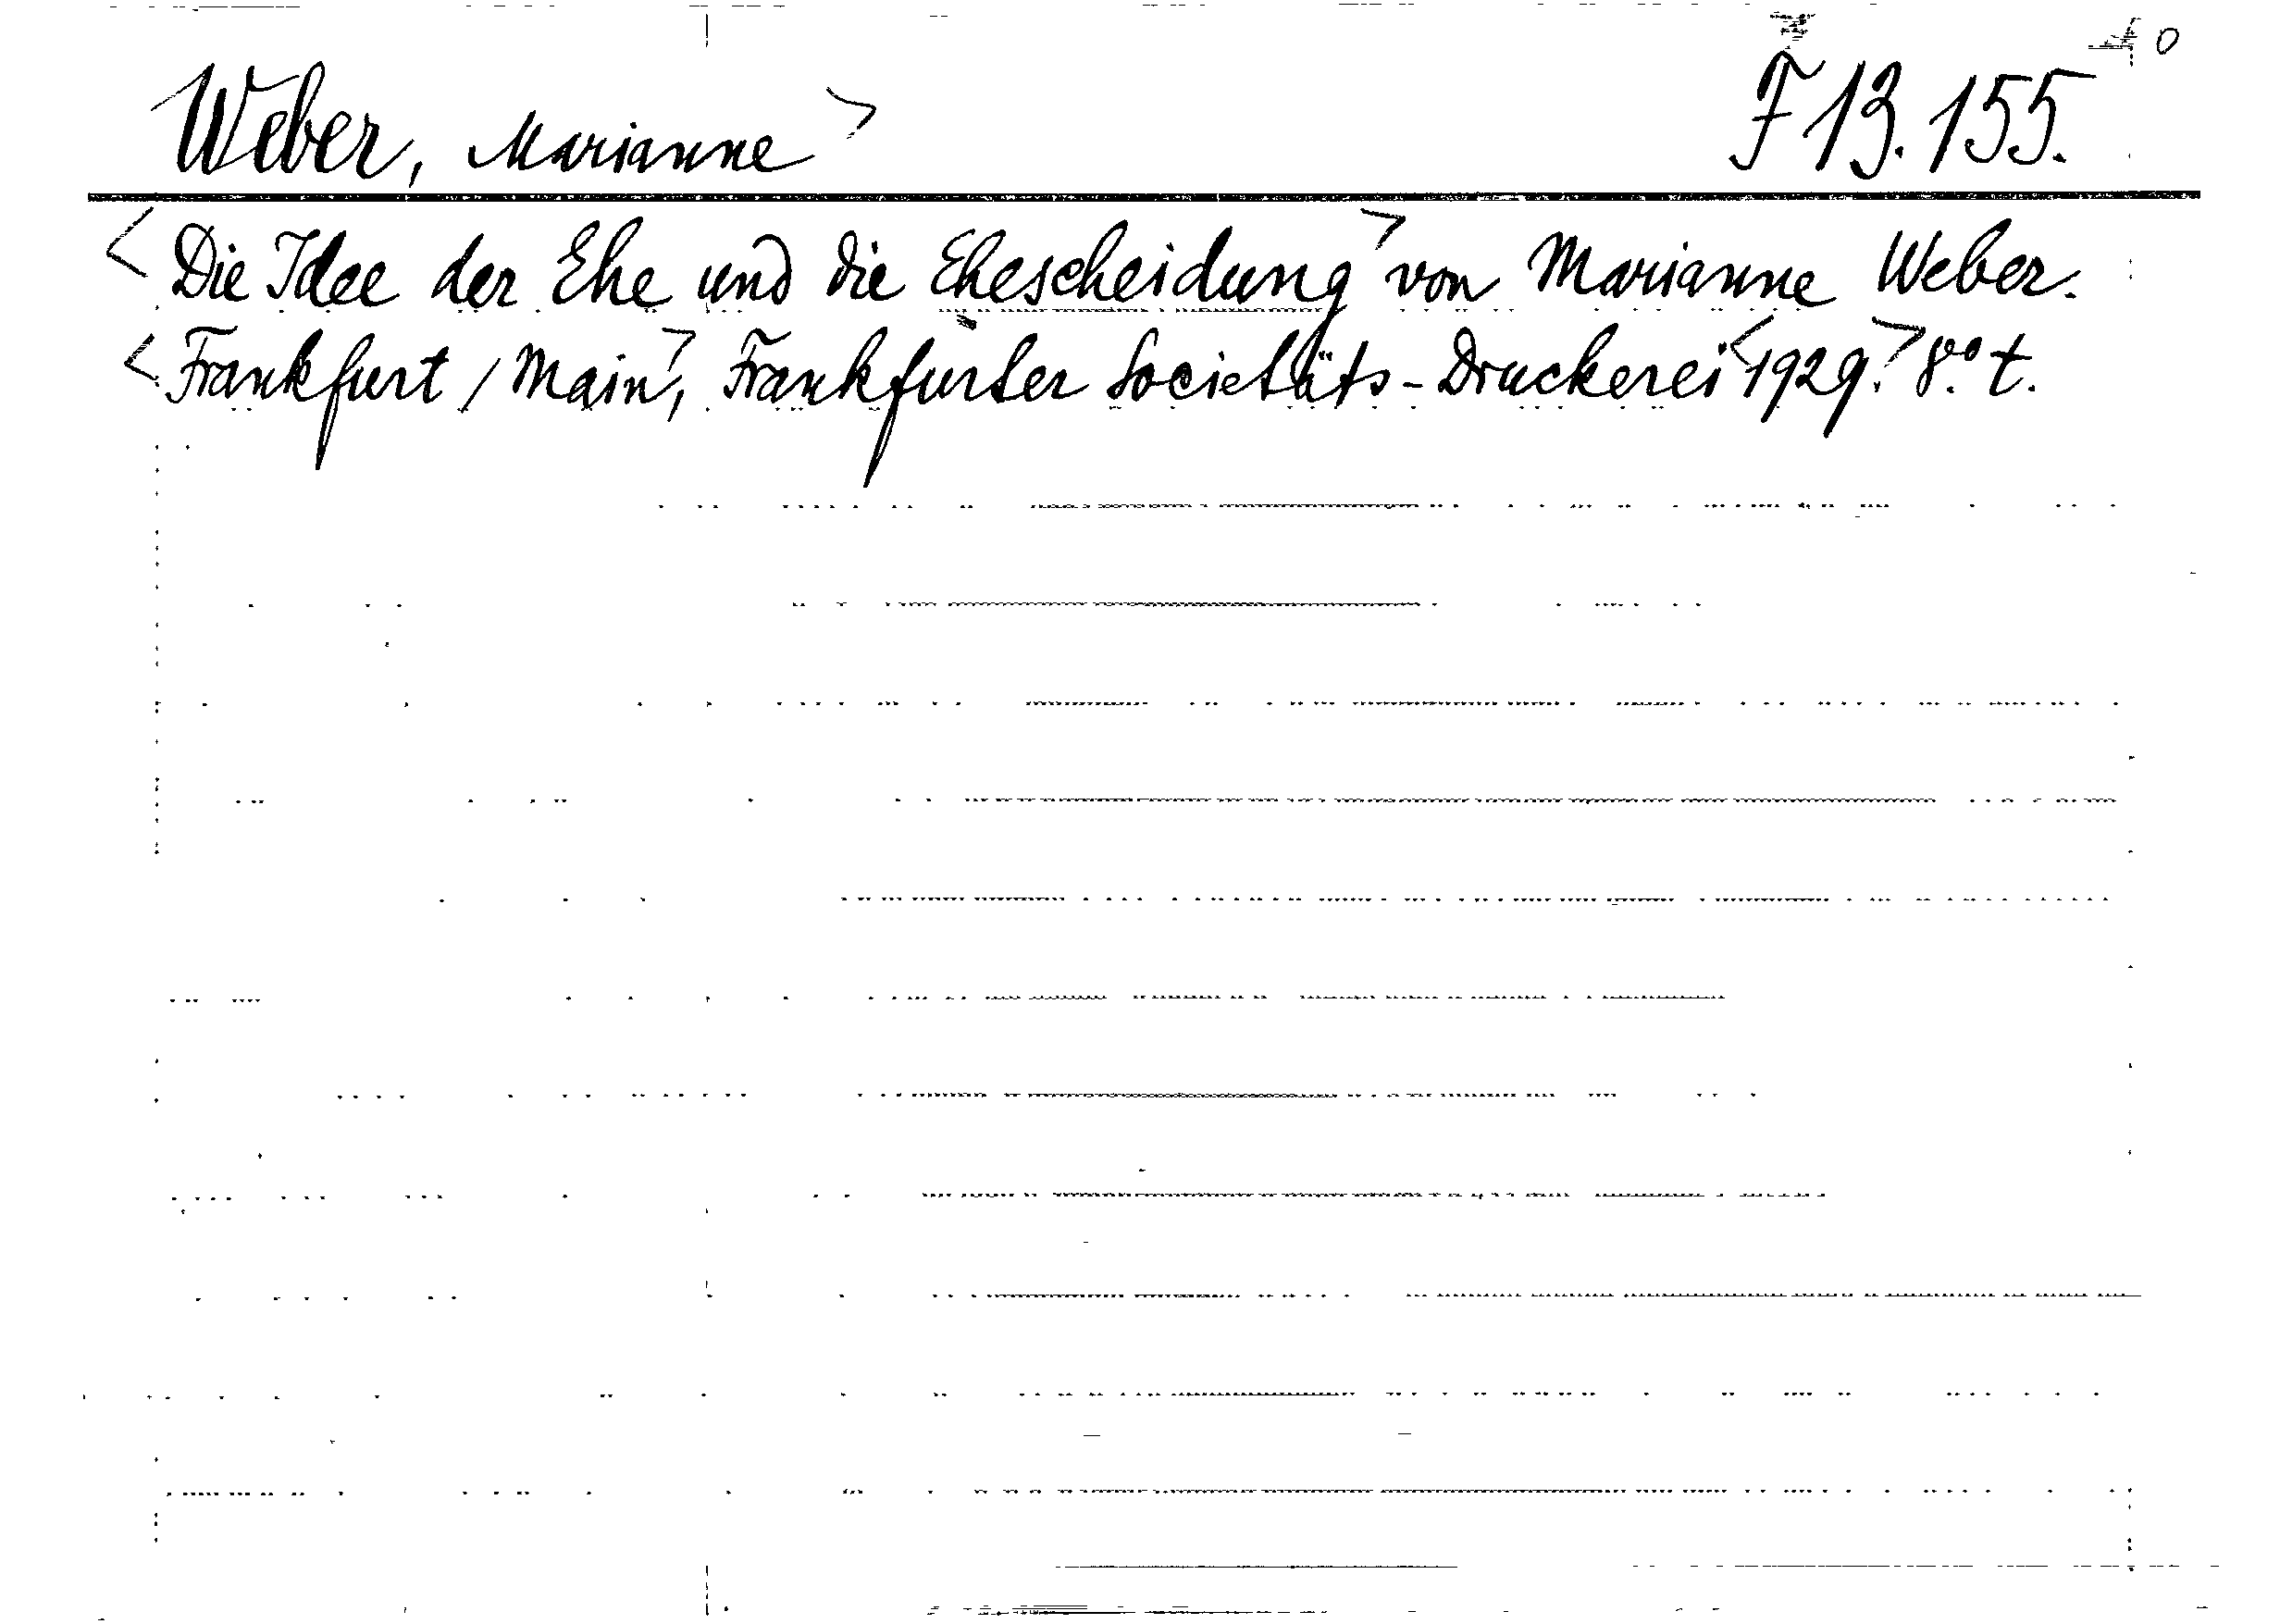 Weber, Marianne> F 13.155. 0
<Die Idee der Ehe und die Ehescheidung> von Marianne Weber.
<Frankfurt / Main>, Frankfurter Societäts-Druckerei <1929.> 8.° t.